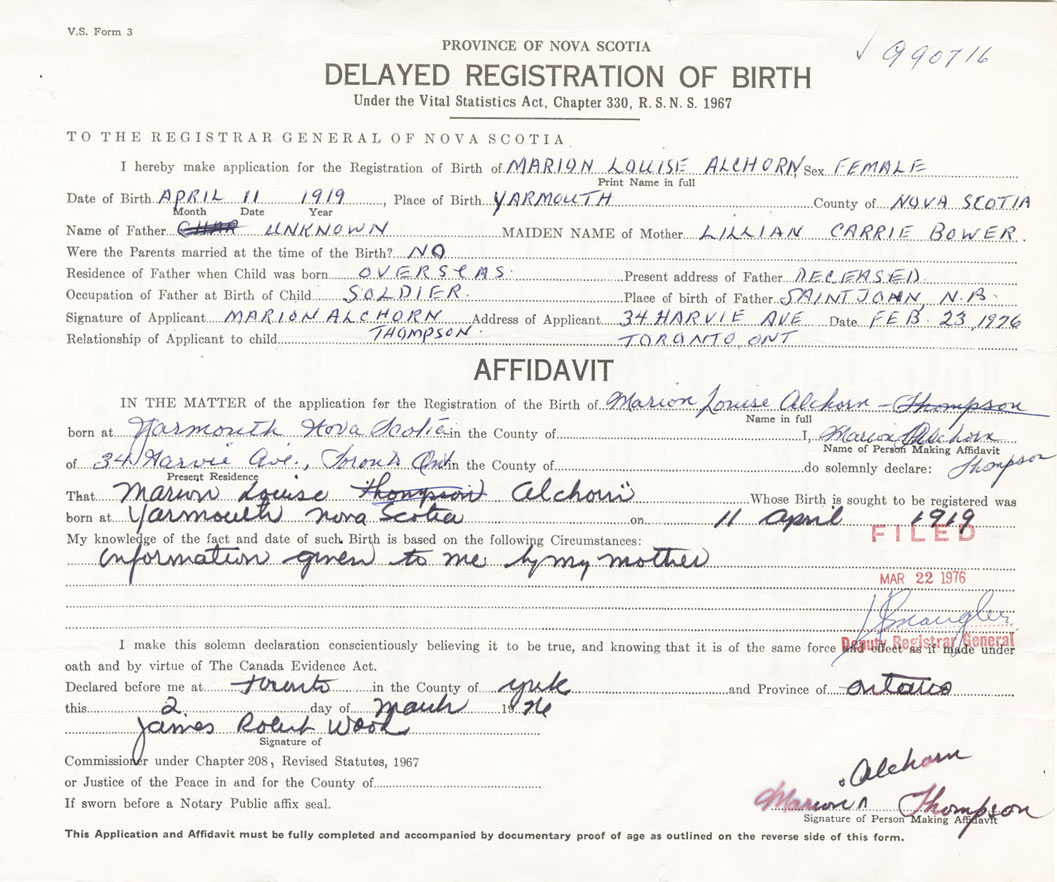 V.S. Form 3
✓ 990716
PROVINCE OF NOVA SCOTIA
DELAYED REGISTRATION OF BIRTH
Under the Vital Statistics Act, Chapter 330, R.S.N.S. 1967
TO THE REGISTRAR GENERAL OF NOVA SCOTIA
I hereby make application for the Registration of Birth of MARION LOUISE ALCHORN Sex FEMALE
Print Name in full
Date of Birth APRIL 11 1919, Place of Birth YARMOUTH County of NOVA SCOTIA
Month Date Year
Name of Father UNKNOWN MAIDEN NAME of Mother LILLIAN CARRIE BOWER.
Were the Parents married at the time of the Birth? NO
Residence of Father when Child was born OVERSEAS. Present address of Father DECEASED
Occupation of Father at Birth of Child SOLDIER. Place of birth of Father SAINT JOHN, N.B.
Signature of Applicant MARION ALCHORN Address of Applicant 34 HARVIE AVE Date FEB. 23, 1976
Relationship of Applicant to child THOMPSON. TORONTO, ONT
AFFIDAVIT
IN THE MATTER of the application for the Registration of the Birth of Marion Louise Alchorn - Thompson
Name in full
born at Yarmouth Nova Scotia in the County of I, Marion Alchorn
Name of Person Making Affidavit
of 34 Harvie Ave., Toronto Ont in the County of do solemnly declare: Thompson
Present Residence
That Marion Louise Thompson Alchorn Whose Birth is sought to be registered was
born at Yarmouth Nova Scotia on 11 April 1919
FILED
My knowledge of the fact and date of such Birth is based on the following Circumstances:
information given to me by my mother
MAR 22 1976
Deputy Registrar General
I make this solemn declaration conscientiously believing it to be true, and knowing that it is of the same force and effect as if made under
oath and by virtue of The Canada Evidence Act.
Declared before me at Toronto in the County of York and Province of Ontario
this 2 day of March 1976
James Robert Wood
Signature of
Commissioner under Chapter 208, Revised Statutes, 1967
or Justice of the Peace in and for the County of
If sworn before a Notary Public affix seal.
Alchorn
Marion Thompson
Signature of Person Making Affidavit
This Application and Affidavit must be fully completed and accompanied by documentary proof of age as outlined on the reverse side of this form.